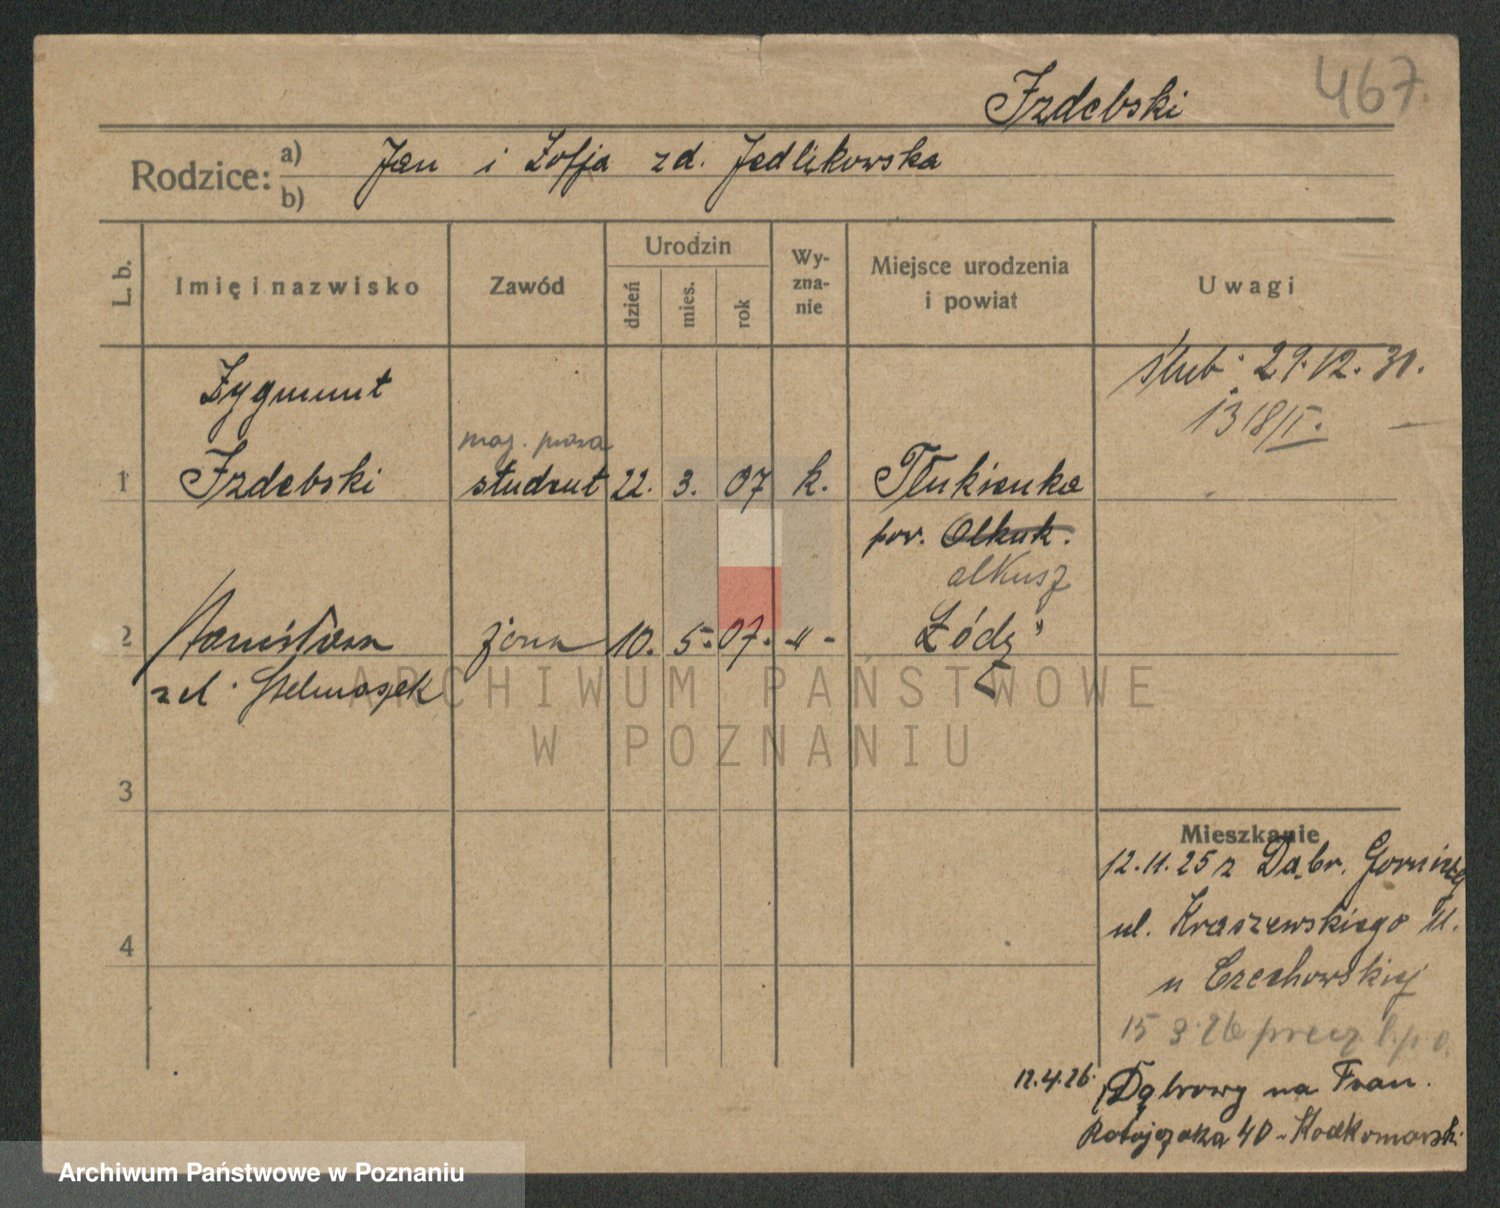 467.
Izdebski
Rodzice: a) Jan i Zofja zd. Jedlikowska
b)
L. b.
Imię i nazwisko
Zawód
Urodzin
dzień
mies.
rok
Wy-
zna-
nie
Miejsce urodzenia
i powiat
Uwagi
ślub 29.12.30.
1318/II.
Zygmunt
mag. prawa
1 Izdebski student 22. 3. 07 k. Tłukienka
pow. Olkuk.
olkusz
2 Stanisława żona 10. 5. 07. -"- Łódź
zd. Stelmaszek
3
4
Mieszkanie
12.11.25 z Dąbr. Gorniczej
ul. Kraszewskiego 11.
u Czechowskiej
15 3.26 precz
12.4.26. Dąbrowy na Fran.
Ratajczaka 40 - Kodkomorski
ARCHIWUM PAŃSTWOWE
W POZNANIU
Archiwum Państwowe w Poznaniu